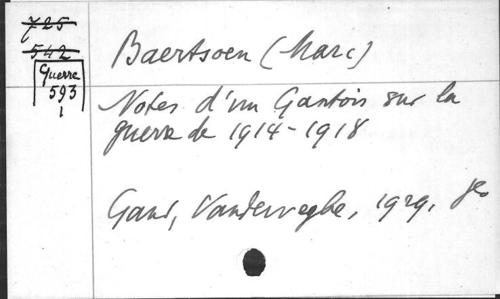 725
542
Guerre
593
1
Baertsoen (Marc)
Notes d'un Gantois sur la
guerre de 1914-1918
Gand, Vanderweghe, 1929, 8o